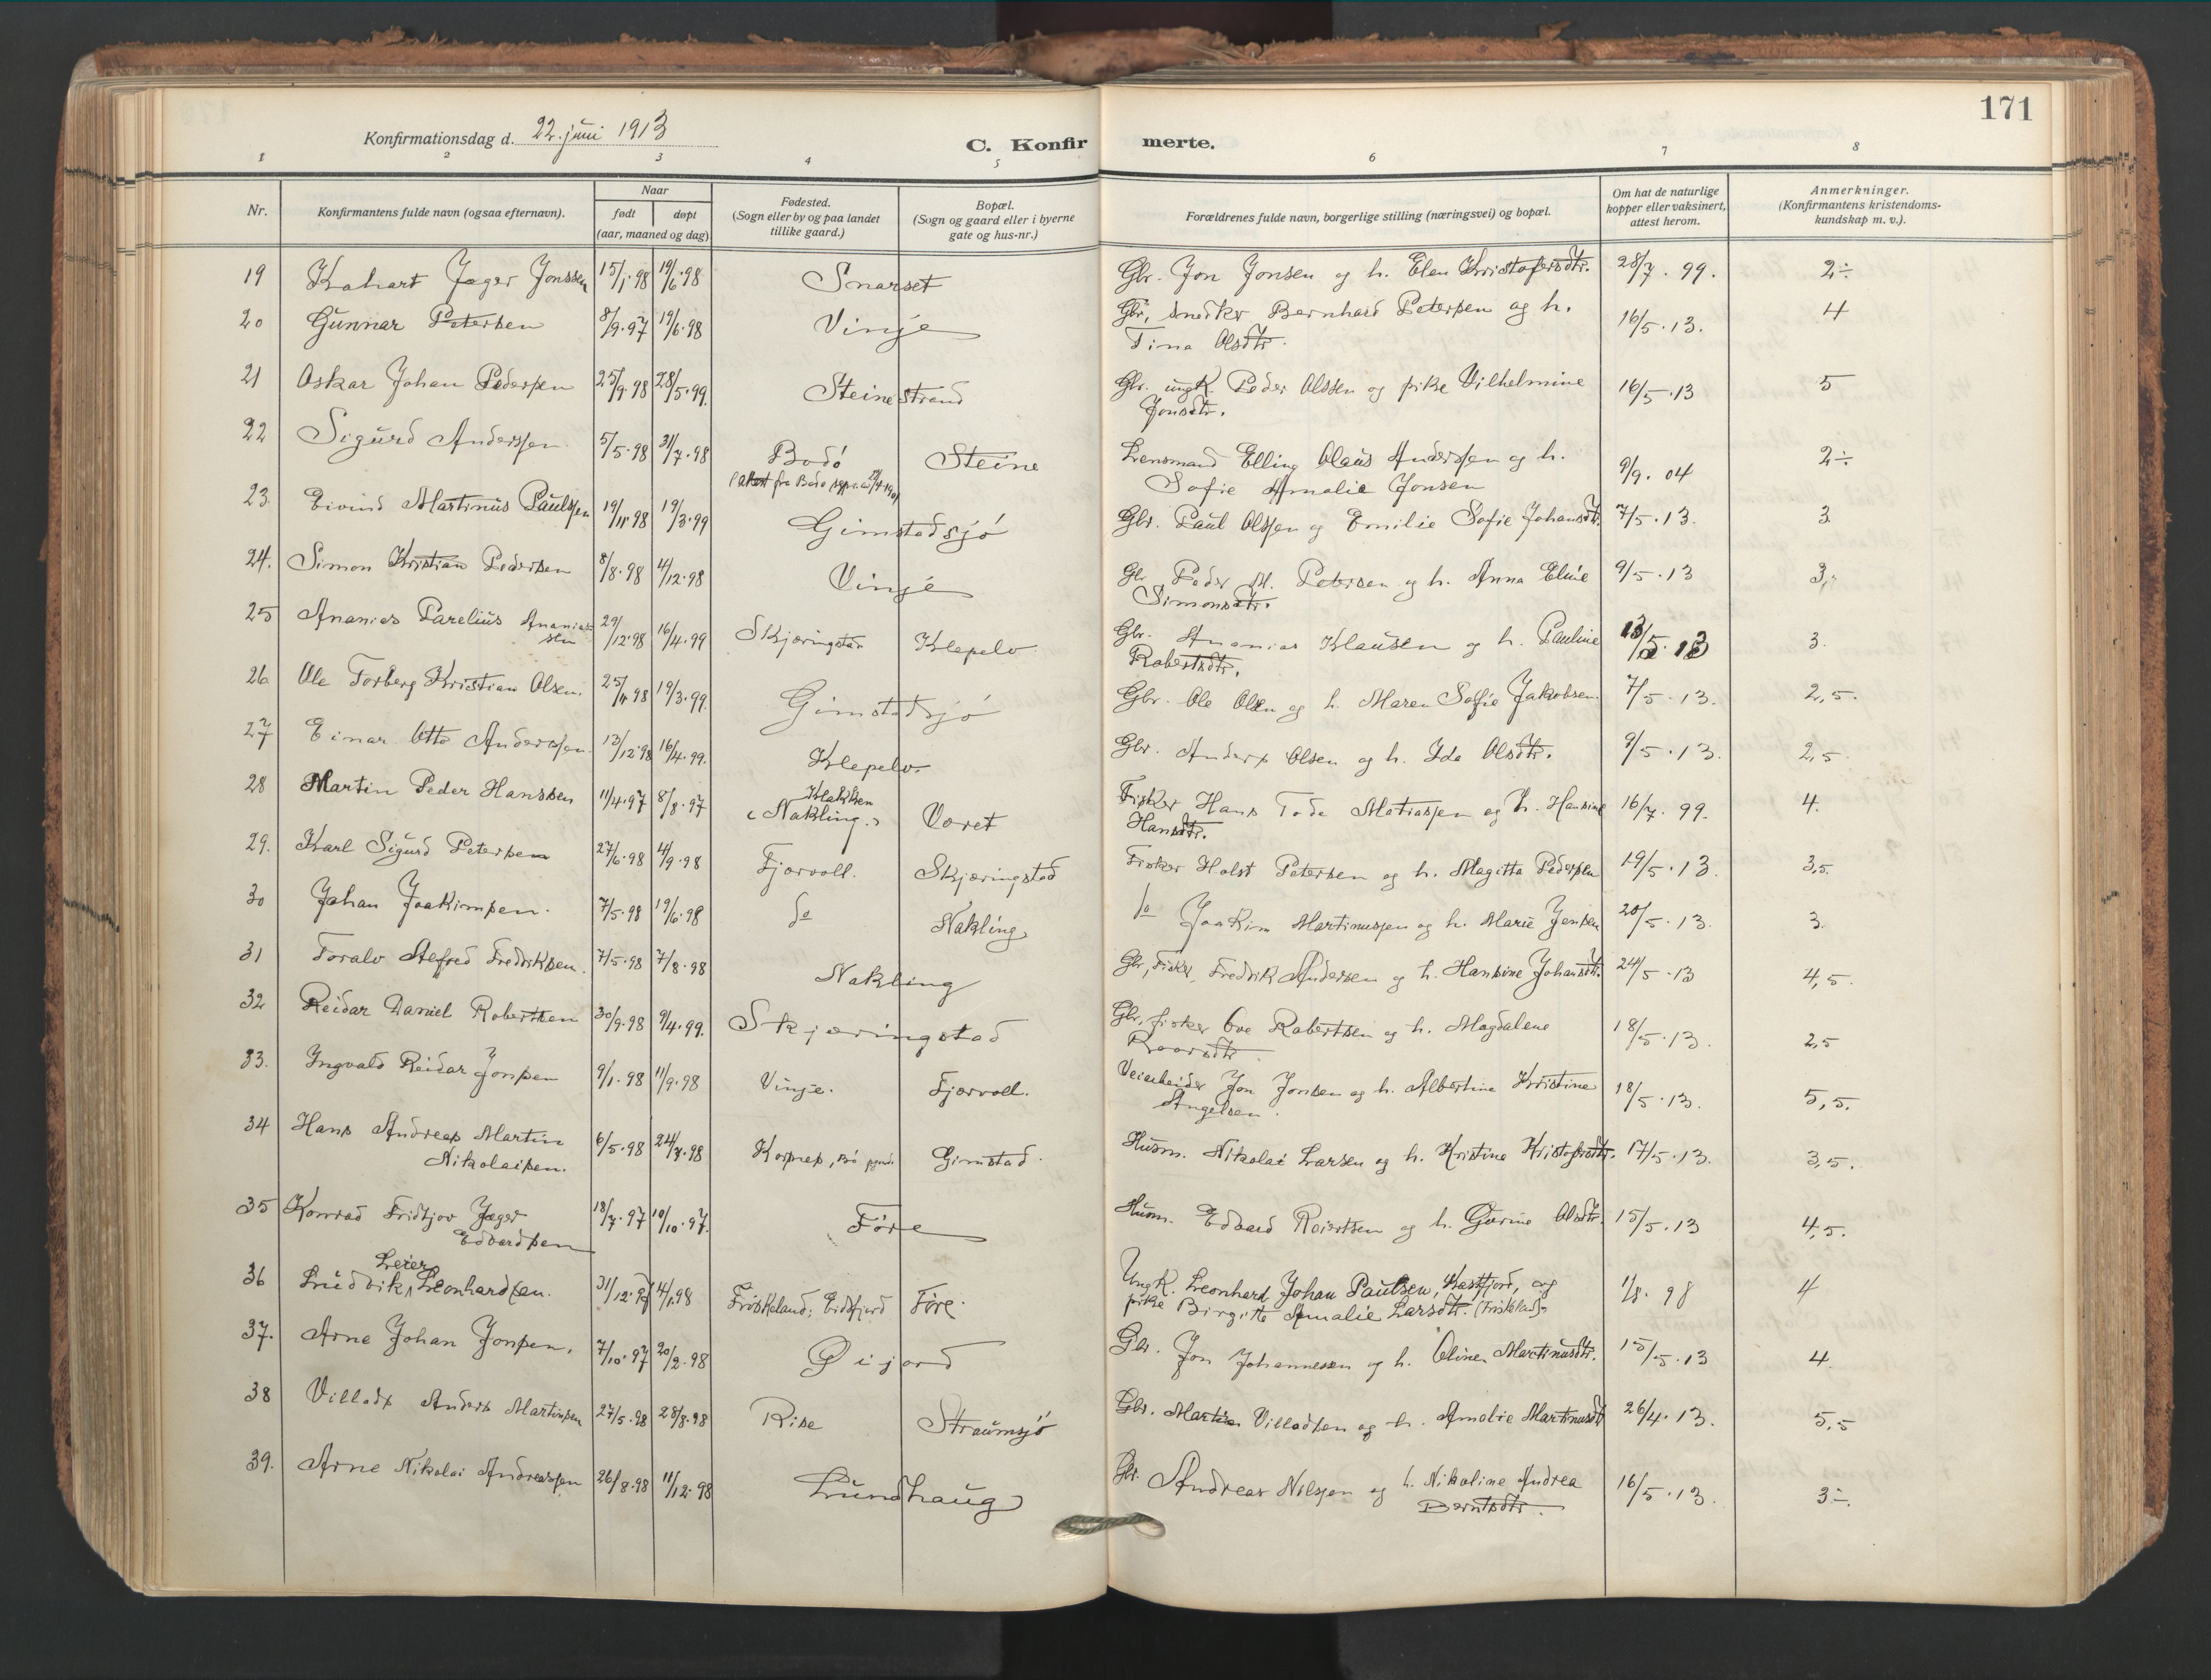 171
Konfirmationsdag d. 22. juni 1913
C. Konfirmerte.
1 2 3 4 5 6 7 8
Nr. Konfirmantens fulde navn (ogsaa efternavn). Naar født døpt (aar, maaned og dag) Fødested. (Sogn eller by og paa landet tillike gaard.) Bopæl. (Sogn og gaard eller i byerne gate og hus-nr.) Forældrenes fulde navn, borgerlige stilling (næringsvei) og bopæl. Om hat de naturlige kopper eller vaksinert, attest herom. Anmerkninger. (Konfirmantens kristendomskundskap m. v.).
19 Kahart Jager Jonssen 15/1.98 19/6.98 Snarset Gbr. Jon Jonsen og h. Elen Kristofersdtr. 28/7.99. 2÷
20 Gunnar Petersen 8/9.97 19/6.98 Vinje Gbr, snedker Bernhard Petersen og h.
Tina Olsdtr. 16/5.13. 4
21 Oskar Johan Pedersen 25/9.98 28/5.99. Steinestrand Gbr. ungk. Peder Olssen og pike Vilhelmine
Jonsdtr. 16/5.13 5
22 Sigurd Anderssen 5/5.98 31/7.98 Bodö Steine Lensmand Elling Olaus Anderssen og h.
Sofie Amalie Jonsen 9/9.04 2÷
23. Eivind Martinus Paulssen 19/11.98 19/3.99 Gimstadsjö Gbr. Paul Olssen og Emilie Sofie Johansdtr. 7/5.13. 3.
24. Simon Kristian Pedersen 8/8.98 4/12.98 Vinje Gbr Peder M. Petersen og h. Anna Eline
Simonsdtr. 9/5.13 3,
25 Ananias Parelius Ananias-
sen 29/12.98 16/4.99 Skjæringstad Klepelv Gbr. Ananias Klausen og h. Pauline
Robertsdtr. 13/5.13 3.
26 Ole Torberg Kristian Olsen. 25/11.98 19/3.99. Gimstadsjö Gbr. Ole Olsen og h. Maren Sofie Jakobsen. 7/5.13. 2,5.
27 Einar Otto Anderssen. 13/12.98 16/4.99. Klepelv. Gbr. Anders Olsen og h. Ida Olsdtr. 9/5.13. 2,5.
28 Martin Peder Hanssen 11/4.97 8/8.97 Klakken
(Nakling.) Vøret Fisker Hans Tode Matiassen og h. Hansine
Hansdtr. 16/7.99. 4.
29. Karl Sigurd Petersen 27/6.98 4/9.98 Fjærvoll. Skjæringstad Fisker Holst Petersen og h. Magitta Pedersen 19/5.13. 3,5.
30 Johan Joakimsen. 7/5.98 19/6.98 do Nakling do Joakim Martinussen og h. Marie Jensen 20/5.13. 3.
31 Toralv Alfred Fredriksen. 7/5.98 7/8.98 Nakling Gbr, Fisker, Fredrik Andersen og h. Hansine Johansdtr. 24/5.13 4,5.
32 Reidar Daniel Robertsen 30/9.98 9/4.99. Skjæringstad Gbr, fisker Ove Robertsen og h. Magdalene
Roarsdtr. 18/5.13. 2,5
33. Ingvald Reidar Jonsen 9/1.98 11/9.98 Vinje. Fjærvoll. Veiarbeider Jon Jonsen og h. Albertine Kristine
Angelsen. 18/5.13. 5,5.
34 Hans Andreas Martin
Nikolaisen. 6/5.98 24/7.98 Kornes, Bö Gimstad. Husm. Nikolai Larsen og h. Kristine Kristofersdtr. 17/5.13. 3,5.
35 Konrad Fridtjov Jager
Edvardsen 18/7.97 10/10.97. Före Husm. Edvard Reiertsen og h. Gurine Olsdtr. 15/5.13 4,5.
36 Ludvik Leier Leonhardsen. 31/12.97 4/1.98 Friskeland; Eidsfjord Före. Ungk. Leonhard Johan Paulsen, Kastfjord, og
pike Birgitte Amalie Larsdtr. (Friskeland). 1/8.98 4
37. Arne Johan Jonsen. 7/10.97 20/2.98 Öijord Gbr. Jon Johannesen og h. Oline Martinusdtr. 15/5.13 4.
38 Villads Anders Martinsen 27/5.98 28/8.98 Rise Straumsjö Gbr. Martin Villadsen og h. Amalie Martinusdtr 26/4.13. 5,5
39. Arne Nikolai Andreassen 26/8.98 11/12.98 Lundhaug Gbr. Andreas Nilssen og h. Nikoline Andrea
Berntsdtr. 16/5.13. 3÷.